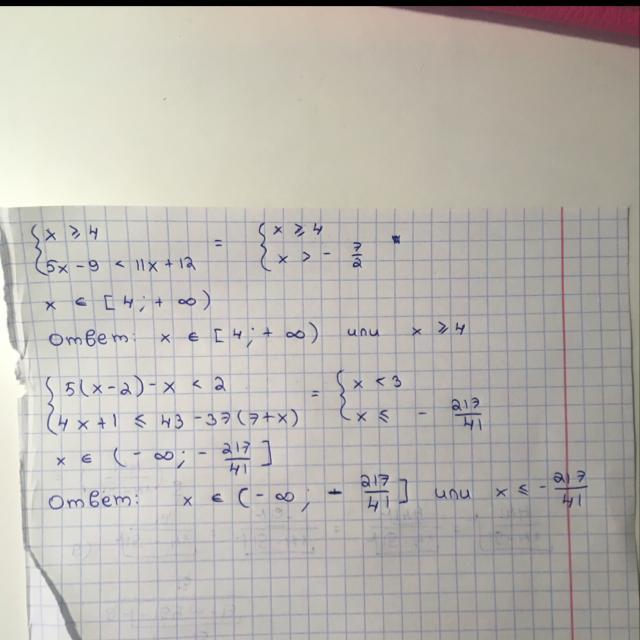 { x ≥ 4 = { x ≥ 4
{ 5x - 9 < 11x + 12 { x > - 7/2
x ∈ [4; + ∞)
Ответ: x ∈ [4; + ∞) или x ≥ 4
{ 5(x-2) - x < 2 = { x < 3
{ 4x + 1 ≤ 43 - 37(7+x) { x ≤ - 217/41
x ∈ (- ∞; - 217/41]
Ответ: x ∈ (- ∞; - 217/41] или x ≤ - 217/41